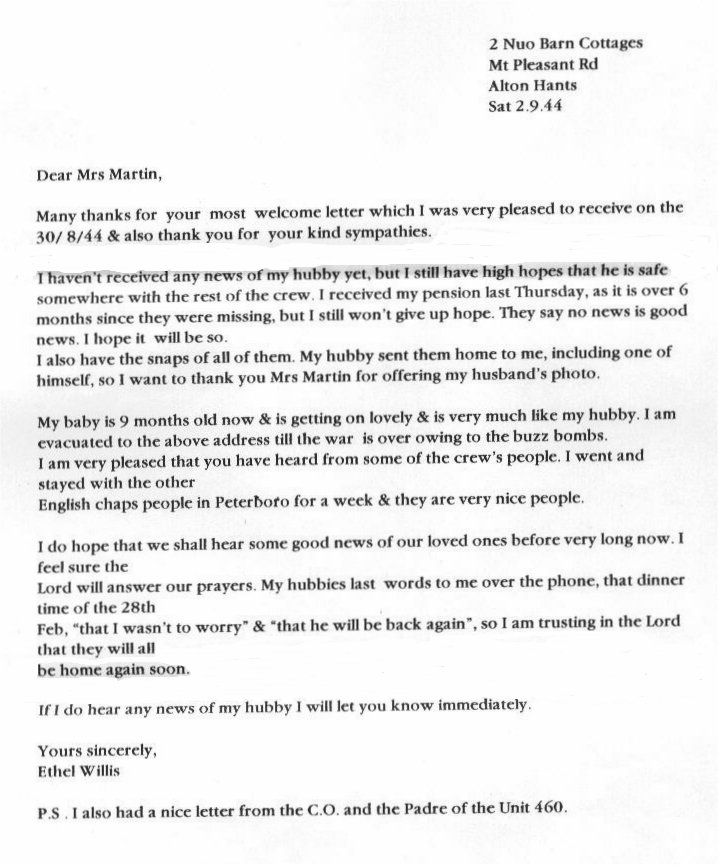 2 Nuo Barn Cottages
Mt Pleasant Rd
Alton Hants
Sat 2.9.44
Dear Mrs Martin,
Many thanks for your most welcome letter which I was very pleased to receive on the
30/ 8/44 & also thank you for your kind sympathies.
I haven't received any news of my hubby yet, but I still have high hopes that he is safe
somewhere with the rest of the crew. I received my pension last Thursday, as it is over 6
months since they were missing, but I still won't give up hope. They say no news is good
news. I hope it will be so.
I also have the snaps of all of them. My hubby sent them home to me, including one of
himself, so I want to thank you Mrs Martin for offering my husband's photo.
My baby is 9 months old now & is getting on lovely & is very much like my hubby. I am
evacuated to the above address till the war is over owing to the buzz bombs.
I am very pleased that you have heard from some of the crew's people. I went and
stayed with the other
English chaps people in Peterboro for a week & they are very nice people.
I do hope that we shall hear some good news of our loved ones before very long now. I
feel sure the
Lord will answer our prayers. My hubbies last words to me over the phone, that dinner
time of the 28th
Feb, "that I wasn't to worry" & "that he will be back again", so I am trusting in the Lord
that they will all
be home again soon.
If I do hear any news of my hubby I will let you know immediately.
Yours sincerely,
Ethel Willis
P.S . I also had a nice letter from the C.O. and the Padre of the Unit 460.